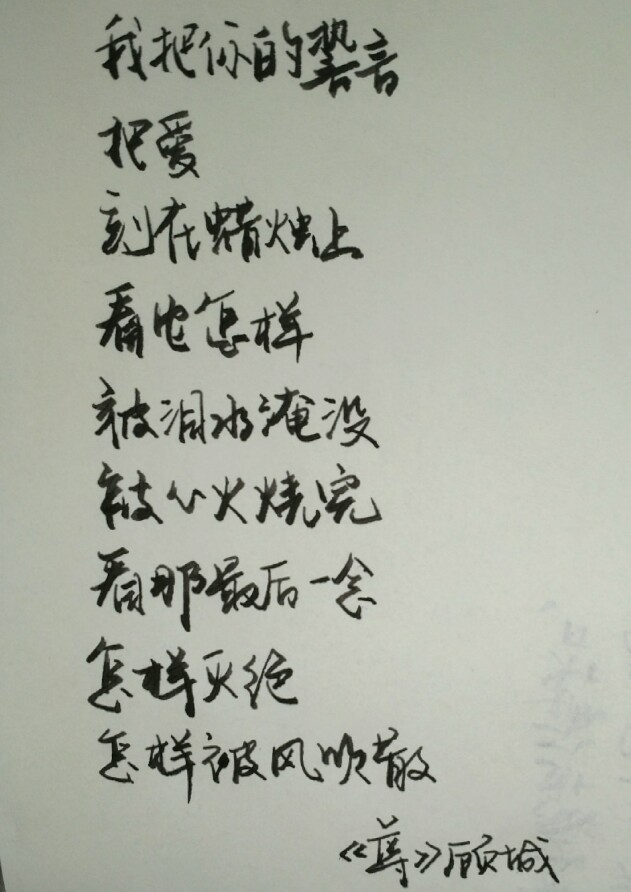 我把你的誓言
把爱
刻在蜡烛上
看它怎样
被泪水淹没
被心火烧完
看那最后一念
怎样灭绝
怎样被风吹散
《》顾城